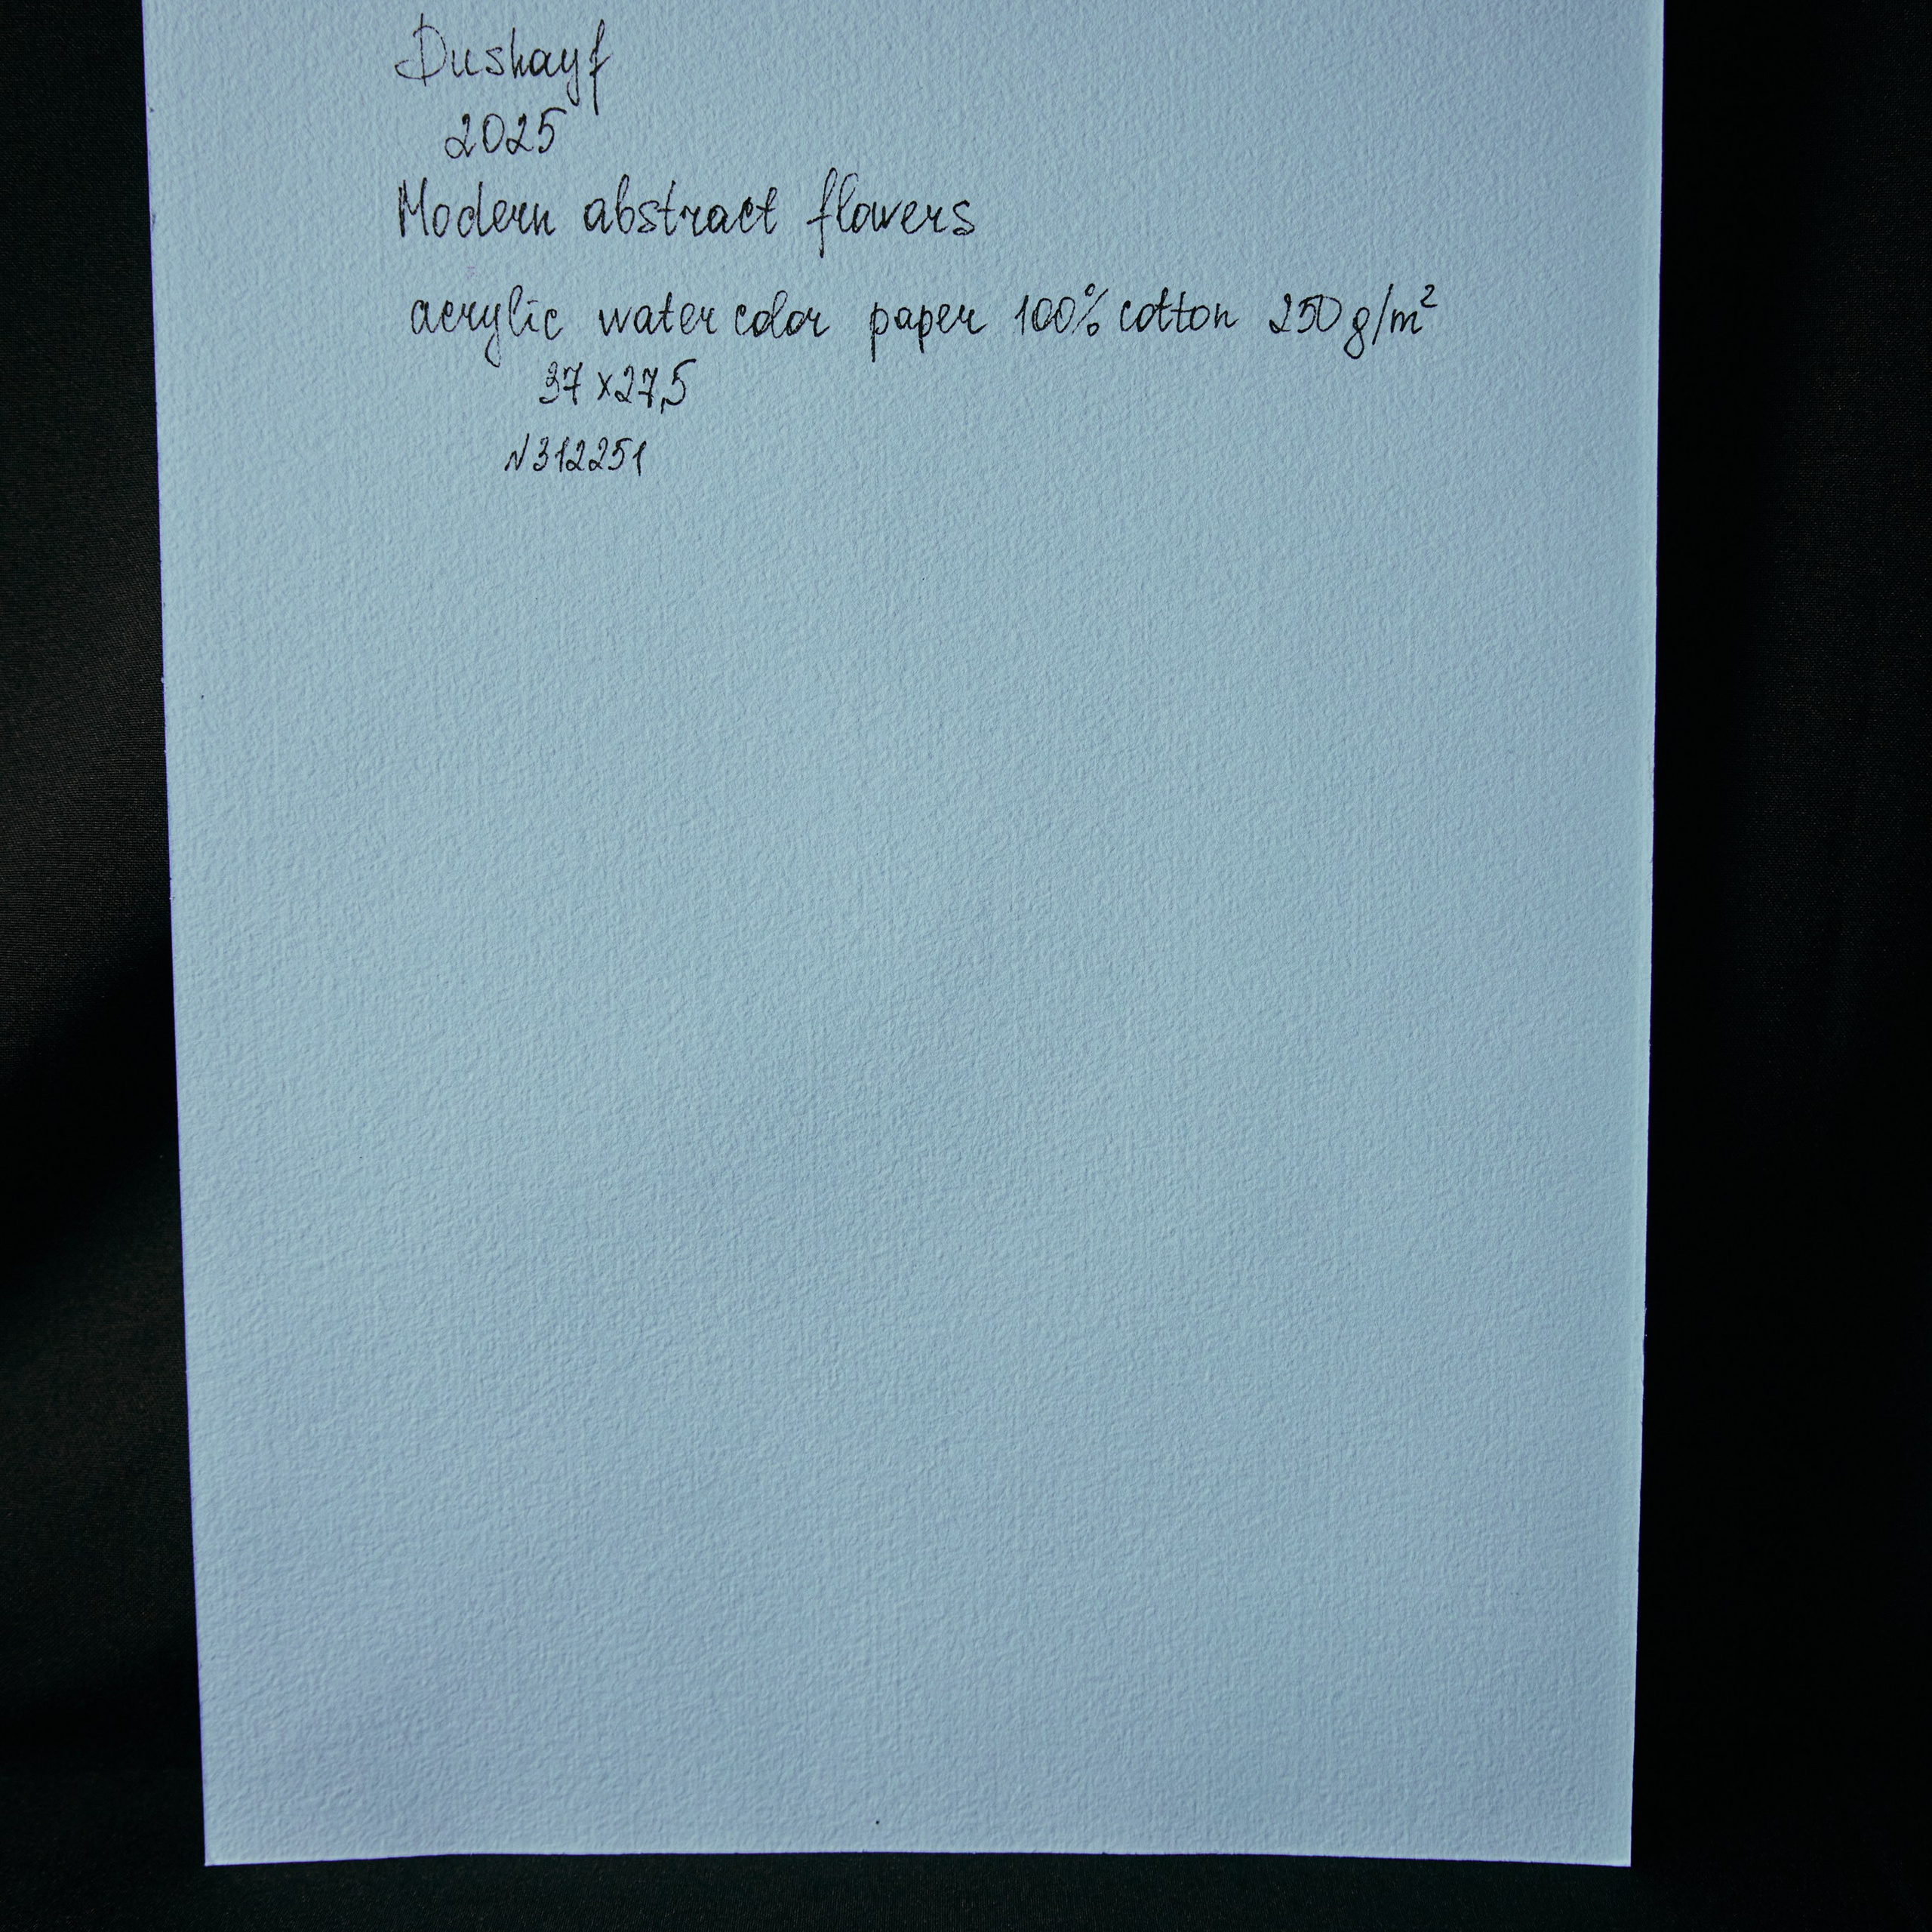 Dushayf
2025
Modern abstract flowers
acrylic watercolor paper 100% cotton 250 g/m²
37 x 27,5
N312251